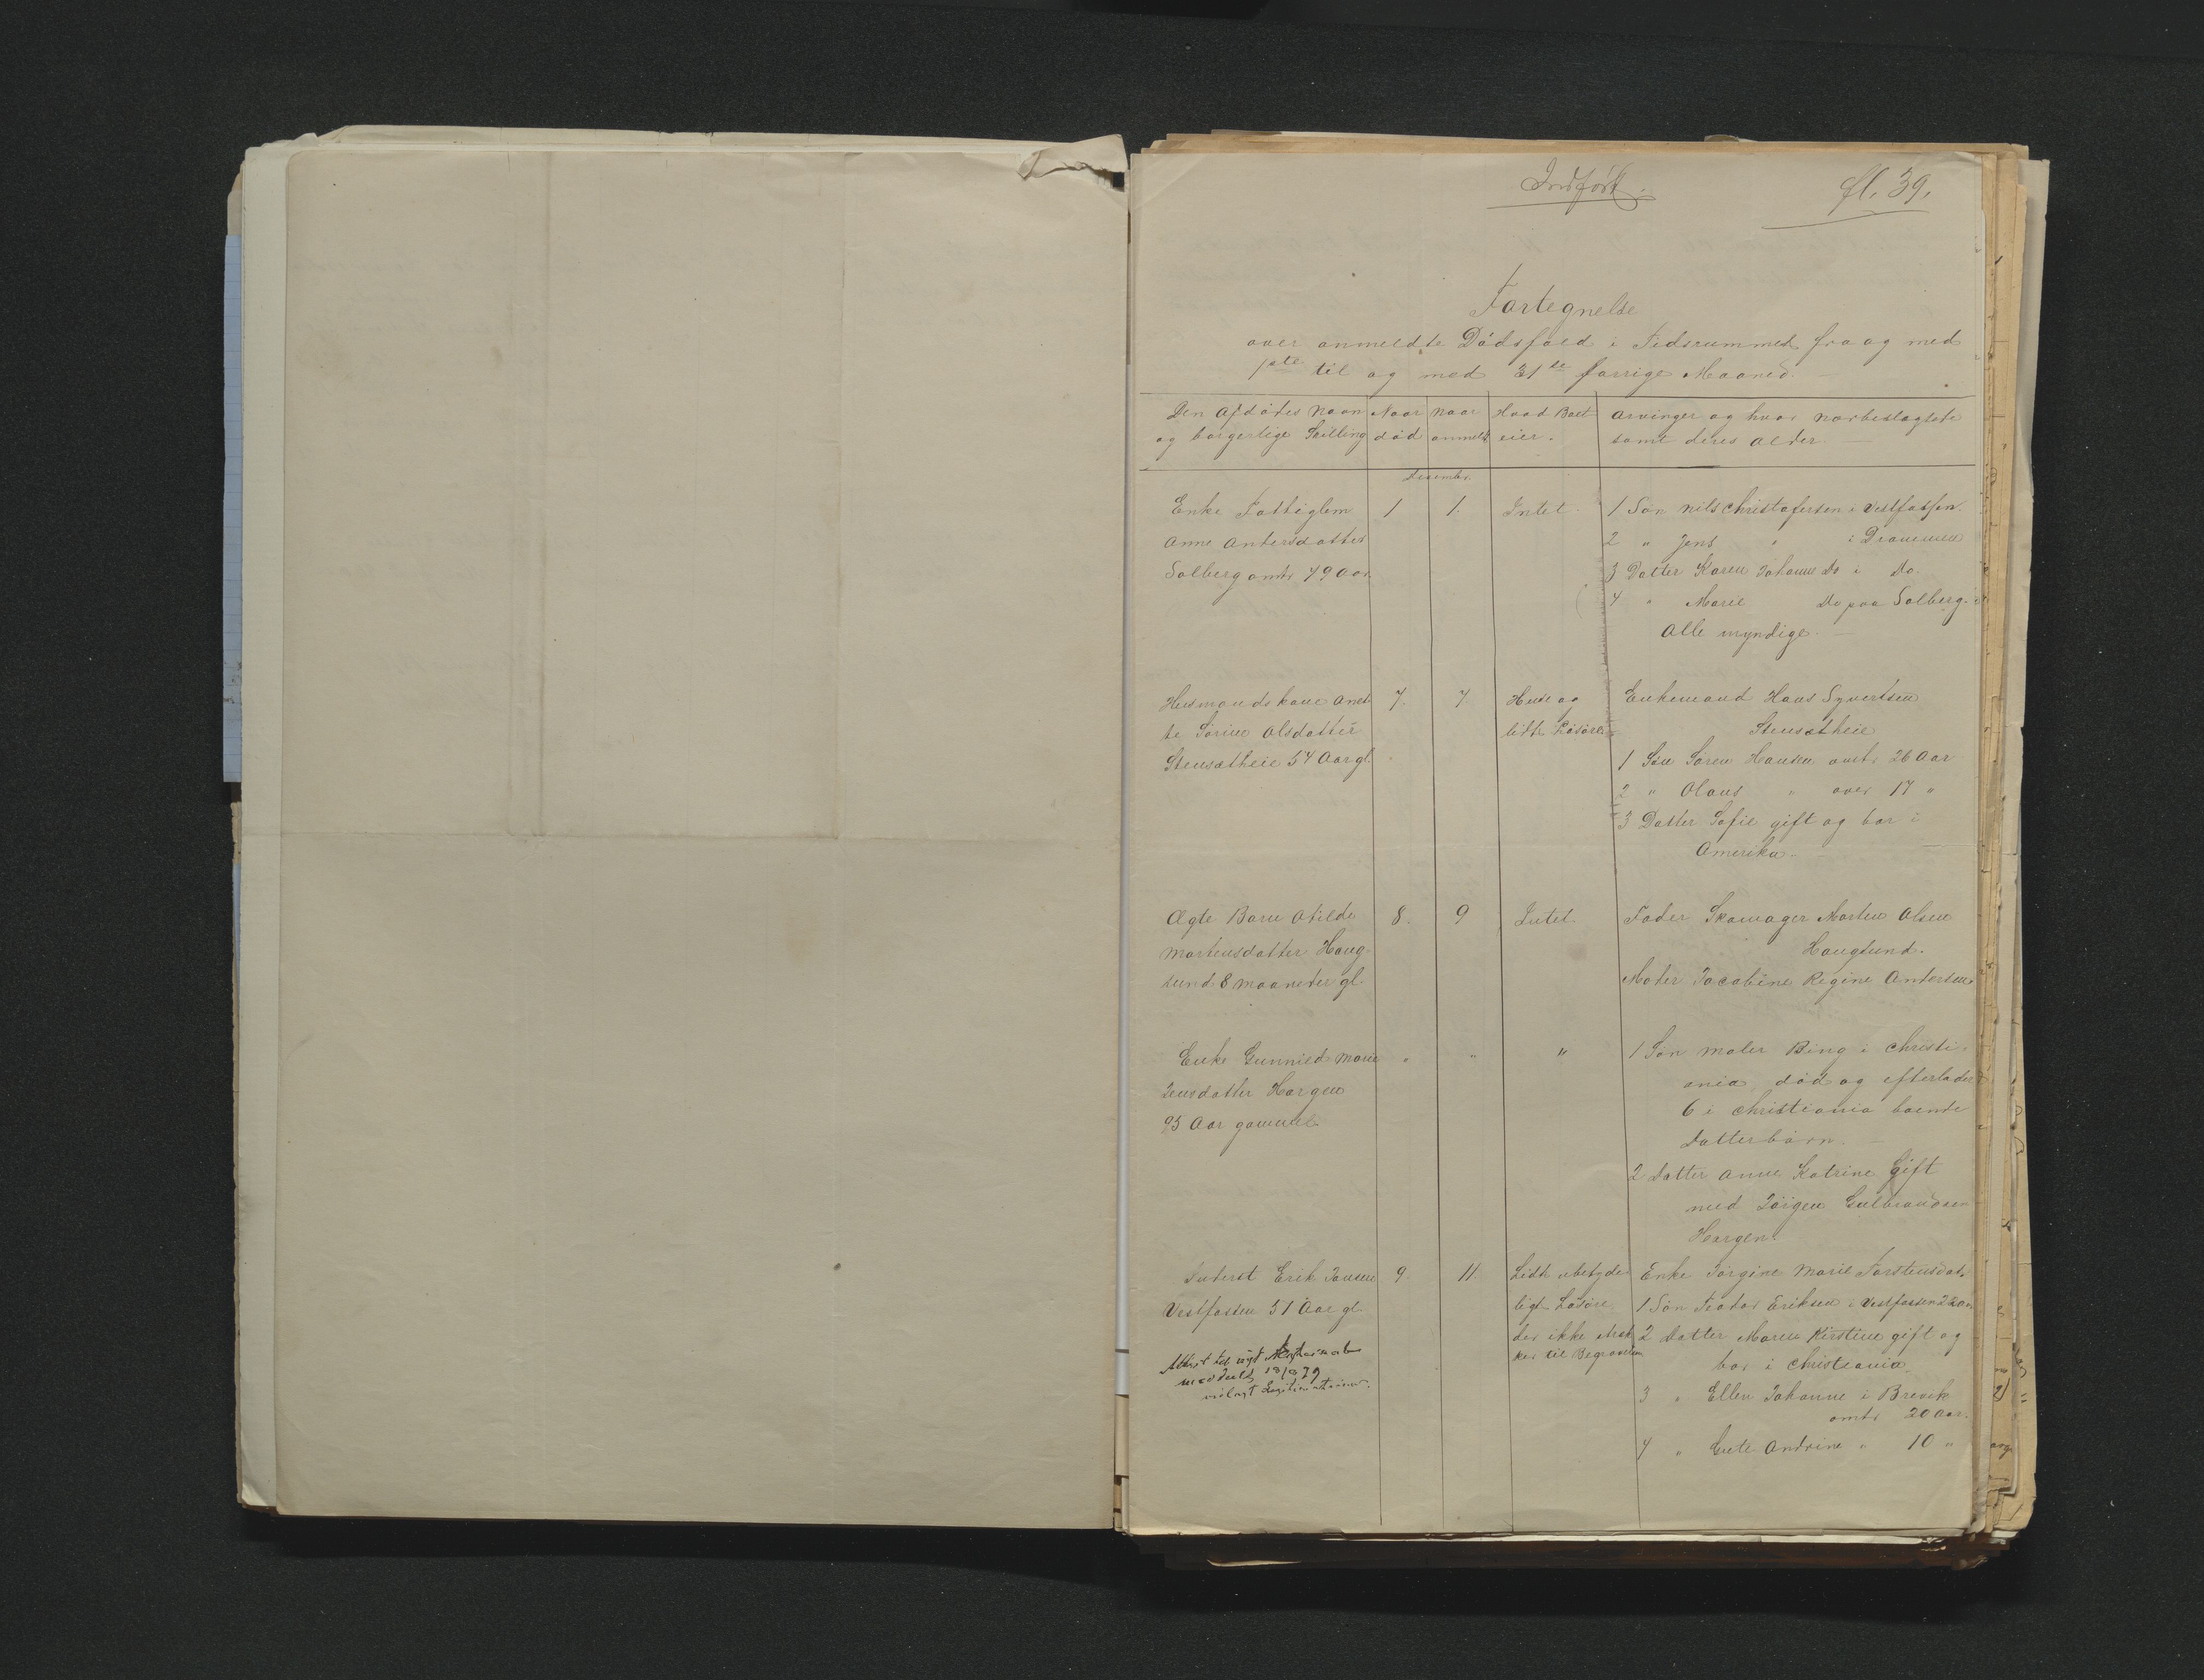 Indført.
fl. 39.
Fartegnelse
over anmeldte Dödsfald i Tidsrummet fra og med
1ste til og med 31te forrige Maaned. —
Den Afdödes Navn
og borgerlige Stilling
Naar
död
Naar
anmeldt
Hvad Boet
eier.
Arvinger og hvor nærbeslagtede
samt deres Alder. —
Desembr.
Enke Fattiglem
Anne Andersdatter
Solberg omtr 79 Aar.
1
1.
Intet.
1 Sön Nils Christofersen i Vestfossen.
2 " Jens " i Drammen
3 Datter Karen Johanne Do i Do.
4 " Marie Do paa Solberg.
Alle myndige. —
Husmandskone Anet-
te Sörine Olsdatter
Stensetheie 54 Aar gl.
7.
7.
Huse og
lidt Lösöre
Enkemand Hans Syvertsen
Stensetheie
1 Sön Sören Hansen omtr 26 Aar
2 " Olaus " over 17 "
3 Datter Sofie gift og bor i
Amerika.
Ægte Barn Otilde
Martensdatter Haug-
sund 8 Maaneder gl.
8.
9
Intet.
Fader Skomager Marten Olsen
Haugsund.
Moder Jacobine Regine Andersen
Enke Gunnild Marie
Jensdatter Horgen
95 Aar gammel.
"
"
"
1 Sön Maler Bing i Christi-
ania, död og efterlader
6 i Christiania boende
Datterbörn. —
2 Datter Anne Katrine Gift
med Jörgen Gulbrandsen
Horgen.
Inderst Erik Jansen
Vestfossen 51 Aar gl.
9
11.
Lidt ubetyde-
ligt Lösöre
der ikke stræk-
ker til Begravelsen
Enke Jörgine Marie Torstensdat.
1 Sön Teodor Eriksen i Vestfossen 22 Aar
2 Datter Maren Kirstine gift og
bor i Christiania
3 " Ellen Johanne i Brevik
omtr 20 Aar.
4 " Grete Andrine " 10 "
Attest til nyt
meddeelt 13/8 79